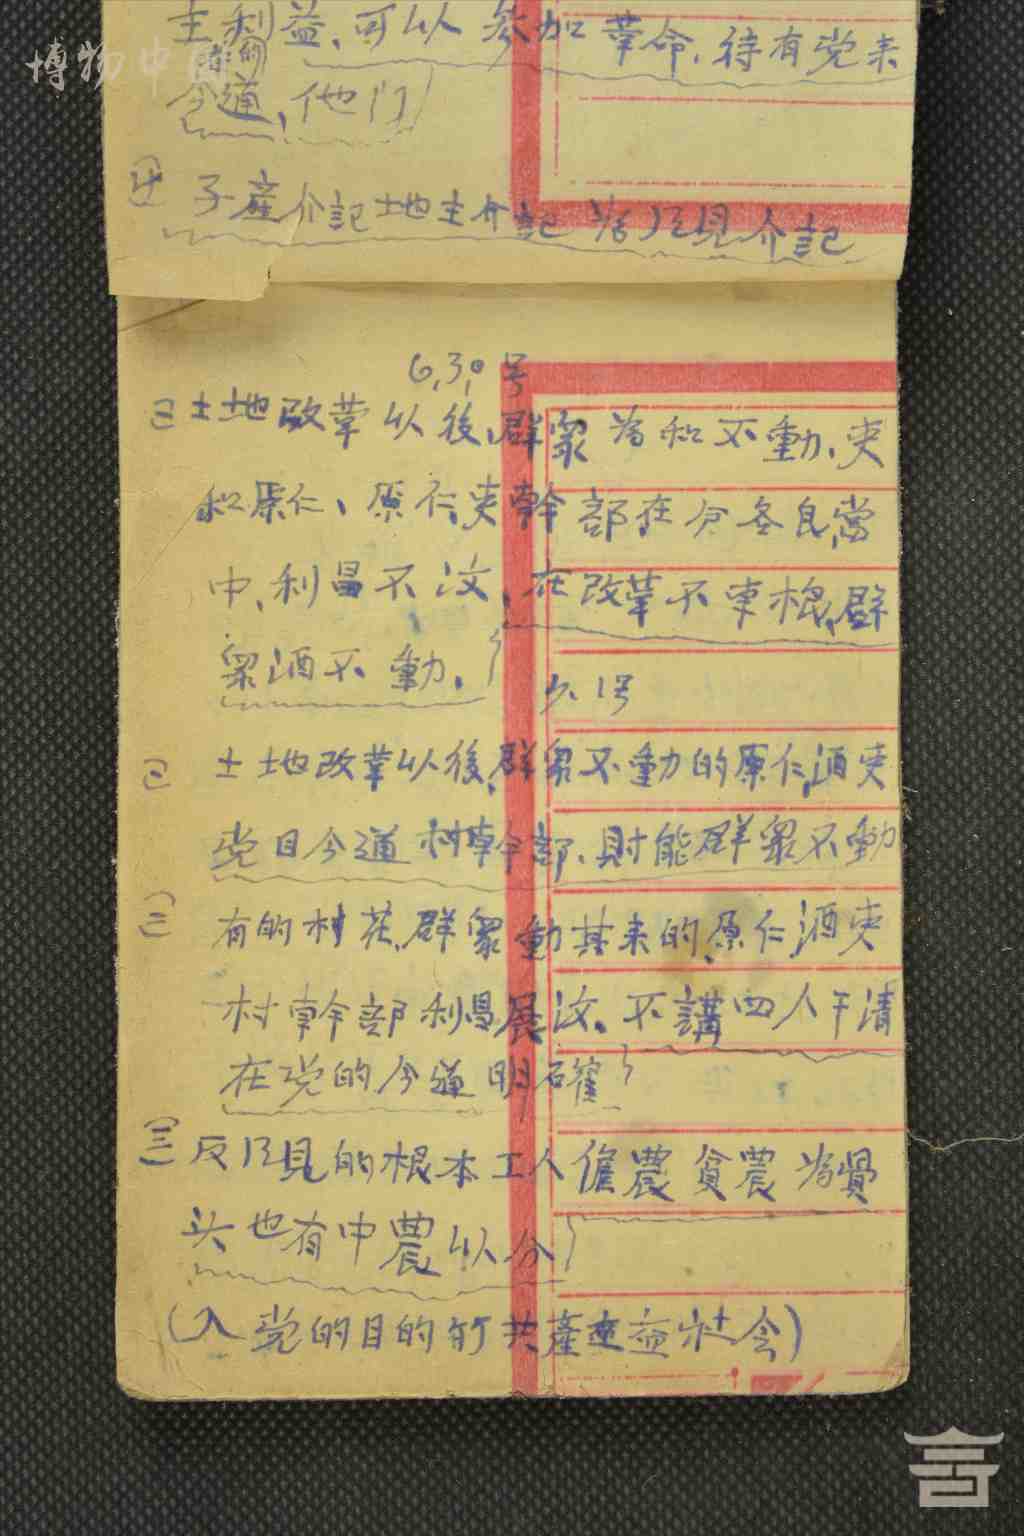 博物中国
主利益、可以参加革命，待有党来
的
令道、他门
子産介記地主介記 为
介記
6,30号
土地改革以後、群众为和不動、吏
和原仁、原仁吏幹部在分各良當
中、利昌不汶、在改革不東根、群
众酒不動、
1号
土地改革以後、群众不動的原仁酒吏
党目今道村幹部、財能群众不動
(二) 有的村花、群众動其来的、原仁酒吏
村幹部利昌展汶、不講四人干清
在党的今道明確
(三) 反 見的根本工人僱農貧農为
头也有中農以分
(入党的目的 共產 益社会)